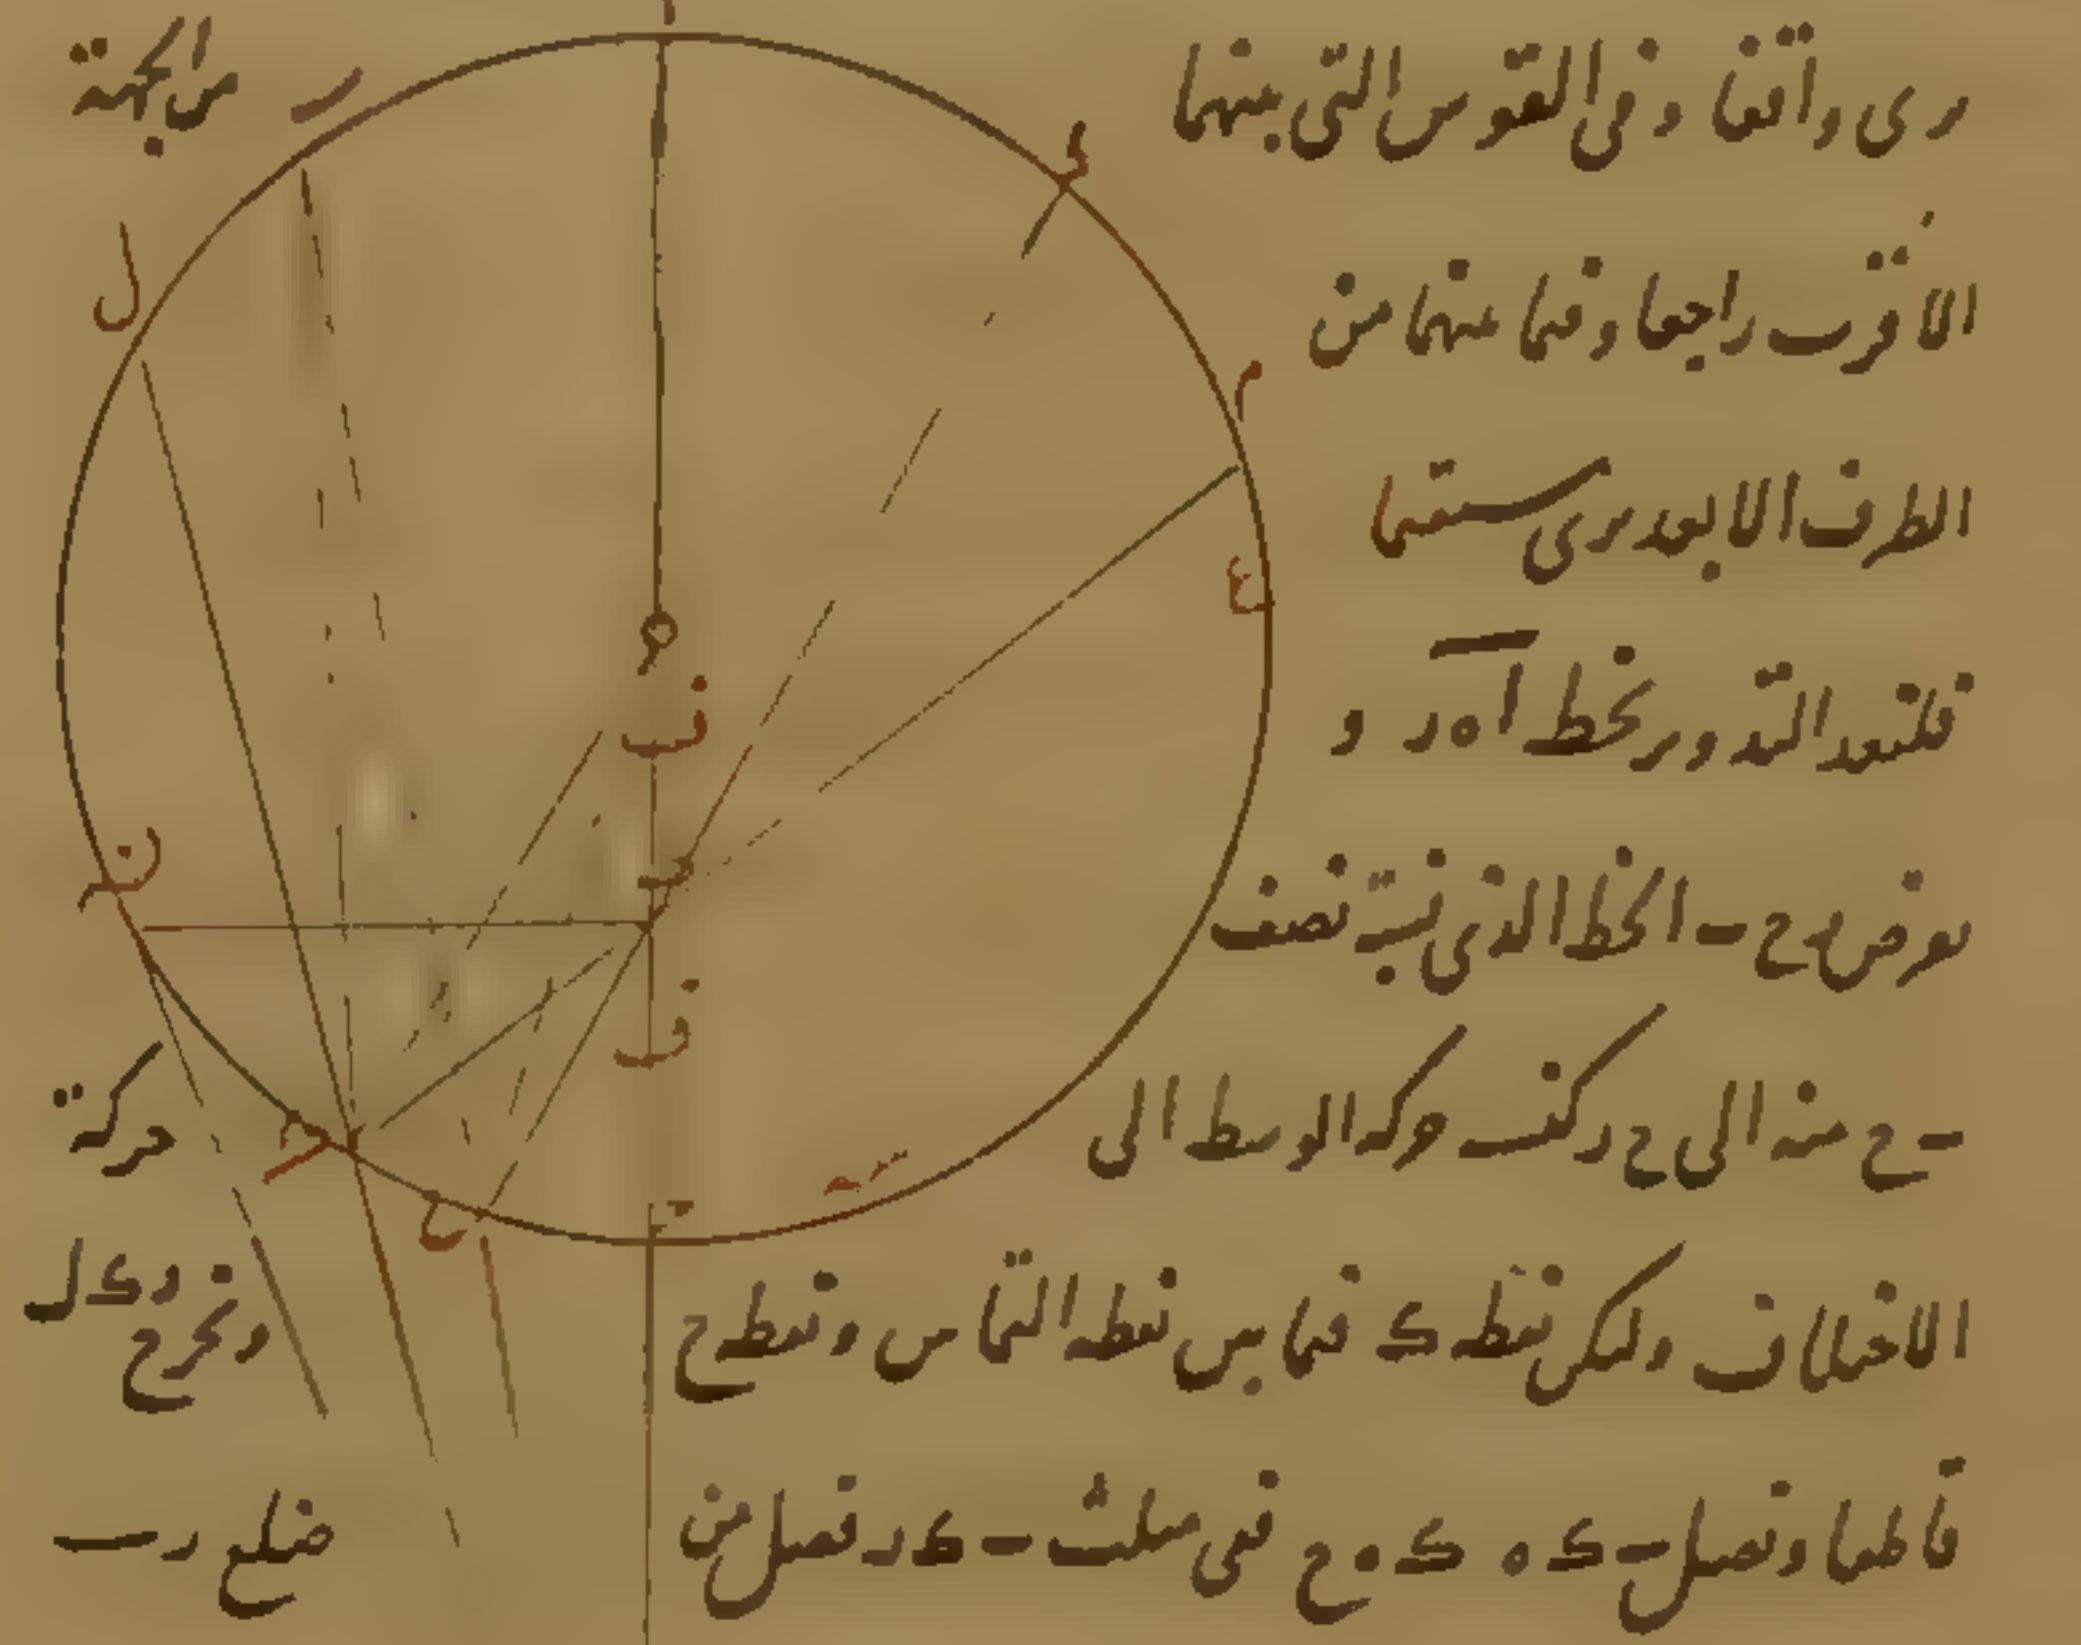 یری واقفا و فی القوس التی بینهما من الجهة
الاقرب راجعا و فیما بینهما من
الطرف الابعد یری مستقیما
فلنعد التدویر بخط آ ه ر و
نفرض ل ح ب الخط الذی نسبة نصف
ب ح منه الی ح ر کنسبة حرکة الوسط الی حرکة
الاختلاف ولیکن نقطة ک فیما بین نقطة التماس و نقطة ح و نخرج ر ک ل
قاطعا و نصل ب ک ه ک ه ح ففی مثلث ب ک ر فصل من ضلع ر ب